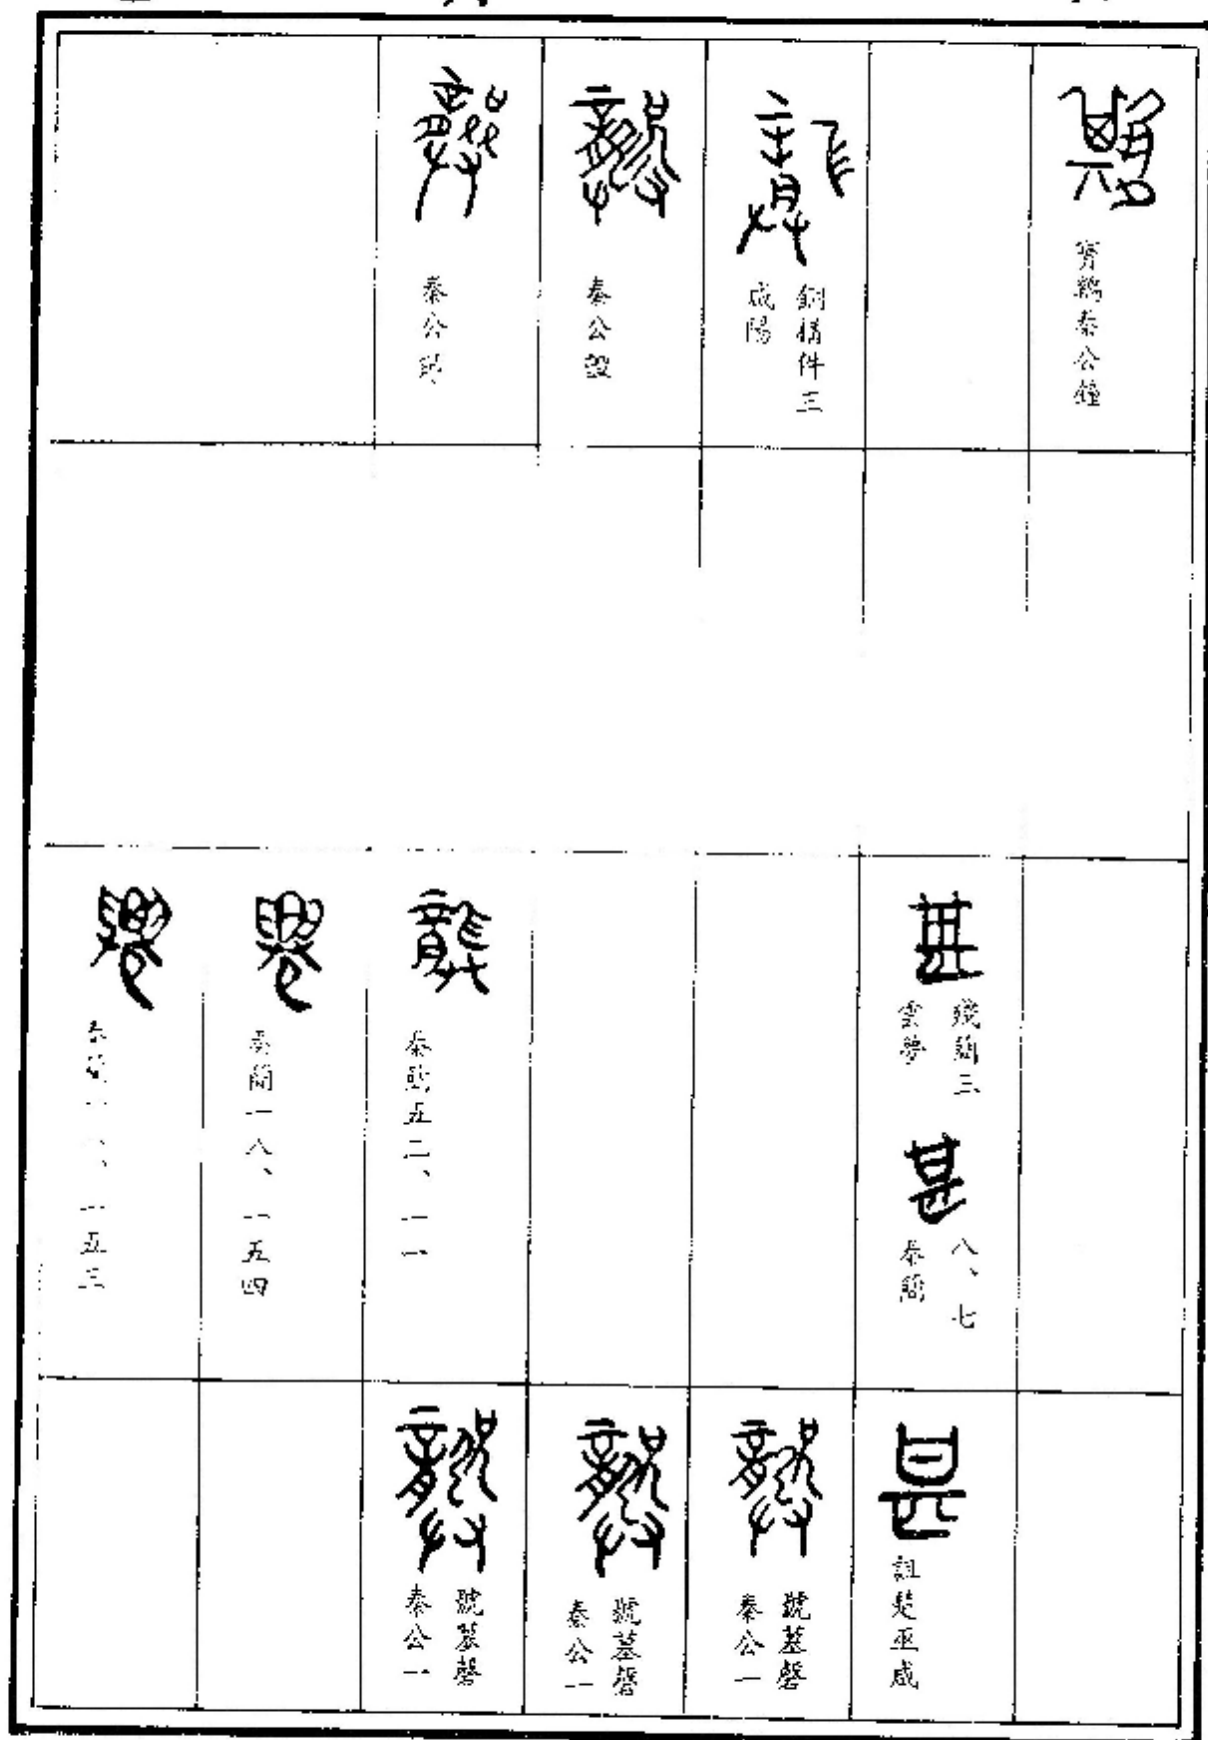 寶鷄秦公鐘
銅構件三
咸陽
龏
秦公𣪘
龏
秦公
甚
殘簡三
雲夢
甚
八、七
秦簡
龔
秦簡五二、一一
秦簡一八、一五四
一五三
甚
詛楚巫咸
龏
號墓磬
秦公一
龏
號墓磬
秦公一
龏
號墓磬
秦公一